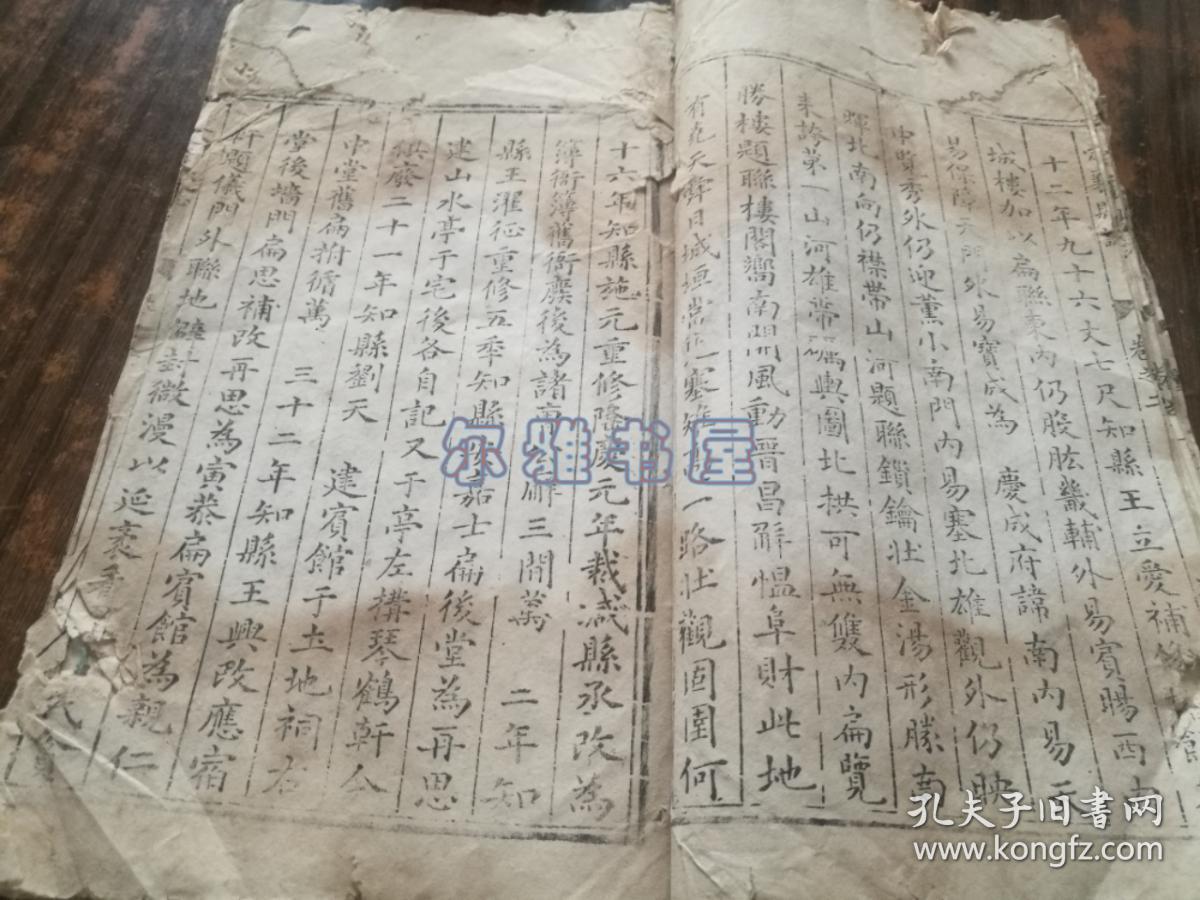 十二年九十六丈七尺知縣王立愛補
城樓加以扁聯東內仍股肱畿輔外易賓暘西
易保障天門外易寶成為 慶成府諱南內易
中時秀外仍迎薰小南門內易塞北雄觀外仍映
輝北南向仍襟帶山河題聯鎖鑰壯金湯形勝南
來誇第一山河雄帶礪輿圖北拱可無雙內扁覽
勝樓題聯樓閣嚮南開風動晉昌解慍阜財此地
有堯天舜日城垣當一塞一路壯觀固圉何
十六年知縣施元重修隆慶元年裁減縣丞改為
簿衙簿舊衙廢後為諸三間萬 二年知
縣王濯征重修五年知縣嘉士扁後堂為再思
建山水亭于宅後各自記又于亭左搆琴鶴軒今
俱廢二十一年知縣劉天 建賓館于土地祠右
中堂舊扁拊循萬 三十二年知縣王興改應宿
堂後墻門扁思補改再思為寅恭扁賓館為親仁
軒題儀門外聯地僻對微漫以延袤
尔雅书屋
孔夫子旧书网
www.kongfz.com